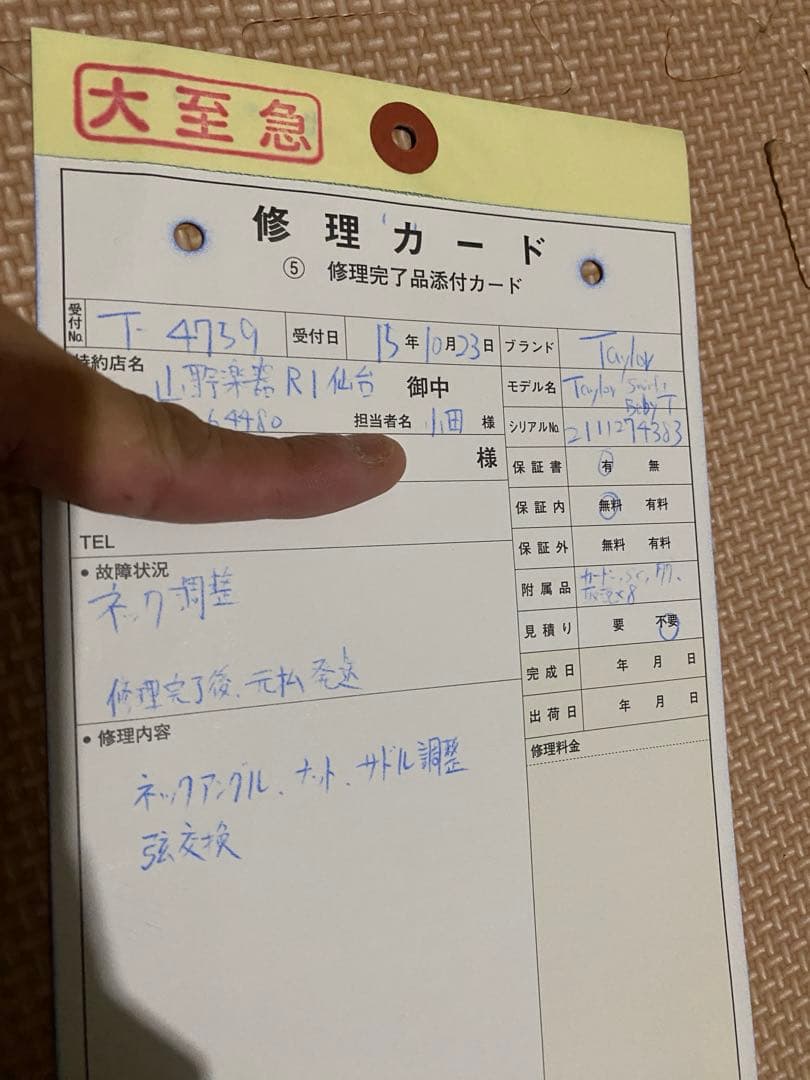 大至急
修理カード
⑤ 修理完了品添付カード
受付No. T-4739 受付日 15年10月23日 ブランド Taylor
特約店名 山野楽器 R1 仙台 御中 モデル名 Taylor Swift Baby T
64480 担当者名 様 シリアルNo. 2111274383
様 保証書 有 無
保証内 無料 有料
TEL
保証外 無料 有料
●故障状況
ネック調整
附属品
見積り 要 不要
修理完了後、元払発送
完成日 年 月 日
出荷日 年 月 日
●修理内容
修理料金
ネックアングル、ナット、サドル調整
弦交換